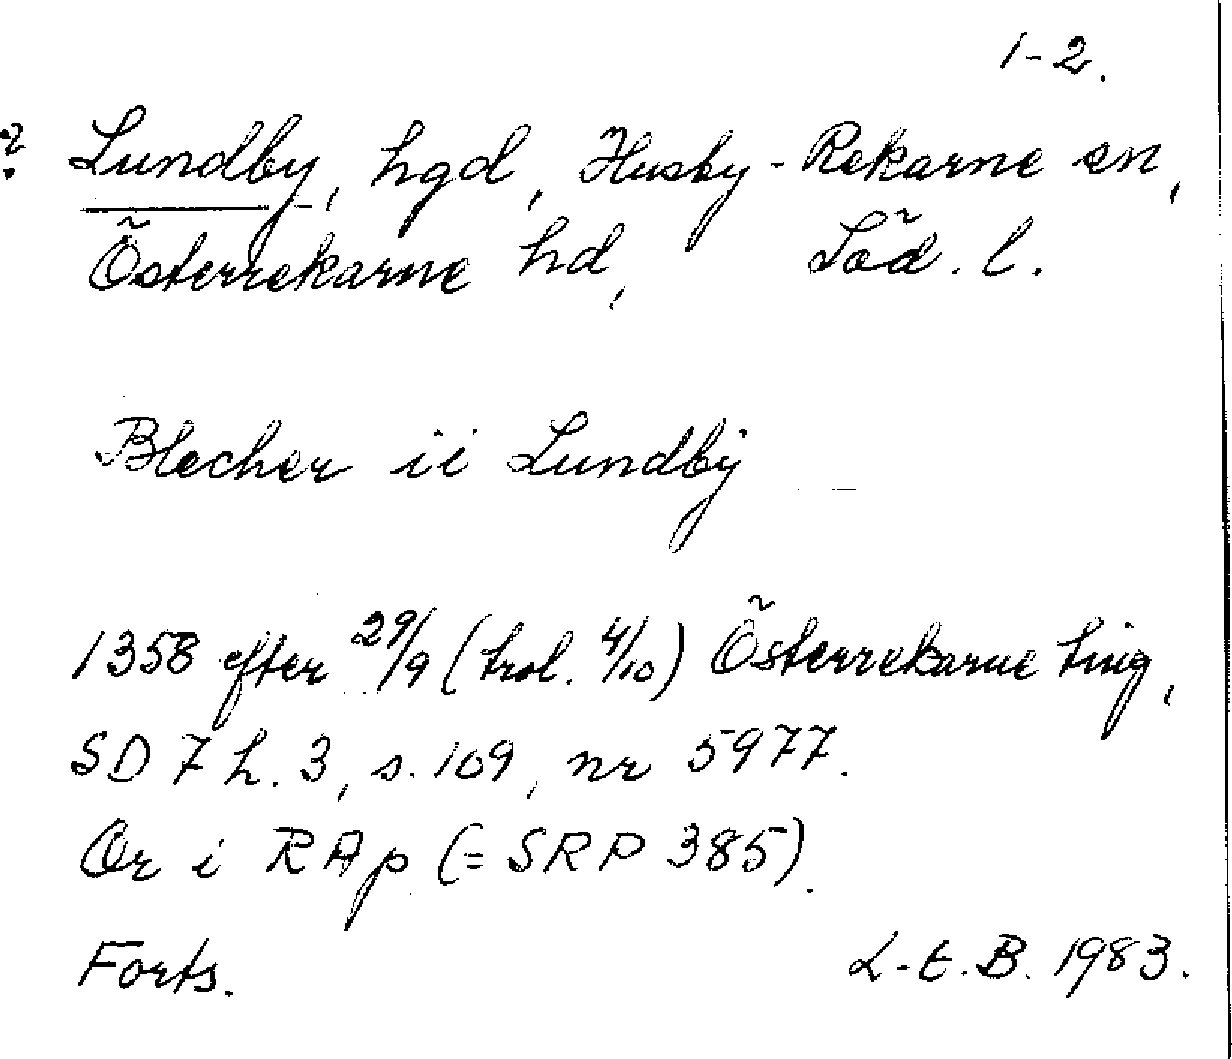 1-2.
? Lundby, hgd, Husby-Rekarne sn,
Österrekarne hd, Söd. l.
Blecher ii Lundbÿ
1358 efter 29/9 (trol. 4/10) Österrekarne ting,
SD 7 h. 3, s. 109, nr 5977.
Or i RAp (= SRP 385).
Forts. L-E. B. 1983.